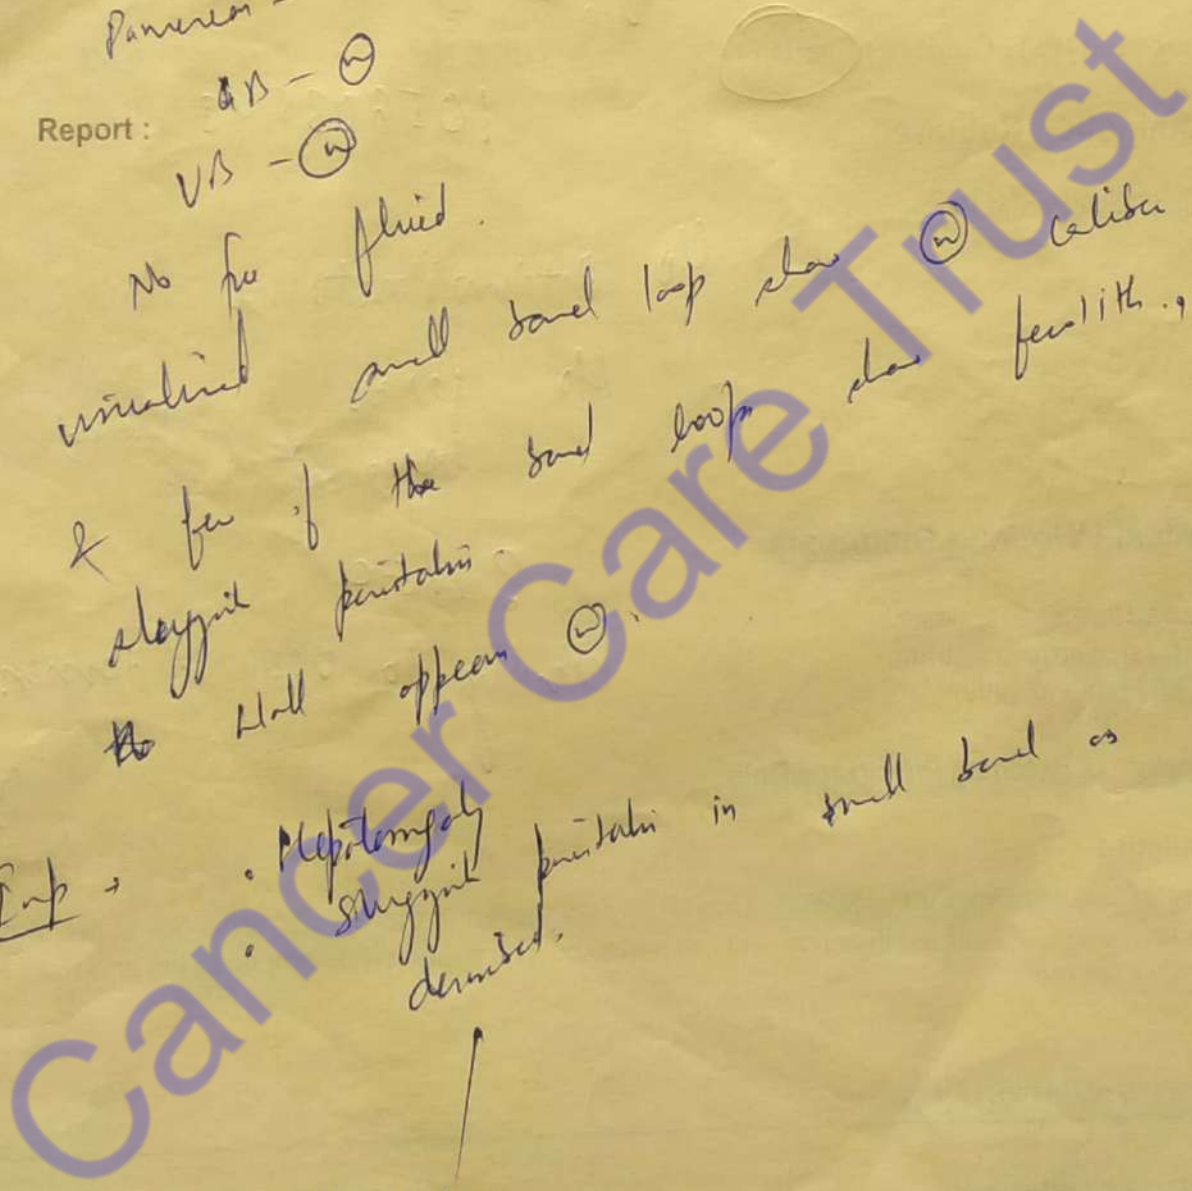 Pancreas -
GB - N
Report :
UB - N
No free fluid.
visualised small bowel loop show N caliber
& few of the bowel loops show fecolith.,
sluggish peristalsis.
Wall appears N.
Imp → . Hepatomegaly
. sluggish peristalsis in small bowel as
described.
Cancer Care Trust